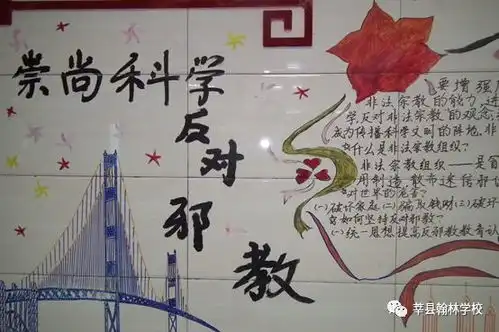 崇尚科学
反对邪教
要增强
非法宗教的能力
学反对非法宗教的观念
成为传播科学文明的阵地,非
什么是非法宗教组织?
非法宗教组织——是冒
用制造、散布迷信邪说
对世界的危害?
(一)破坏家庭(二)骗取钱财(三)破坏
如何坚持反对邪教?
(一)统一思想提高反邪教教育认
莘县翰林学校